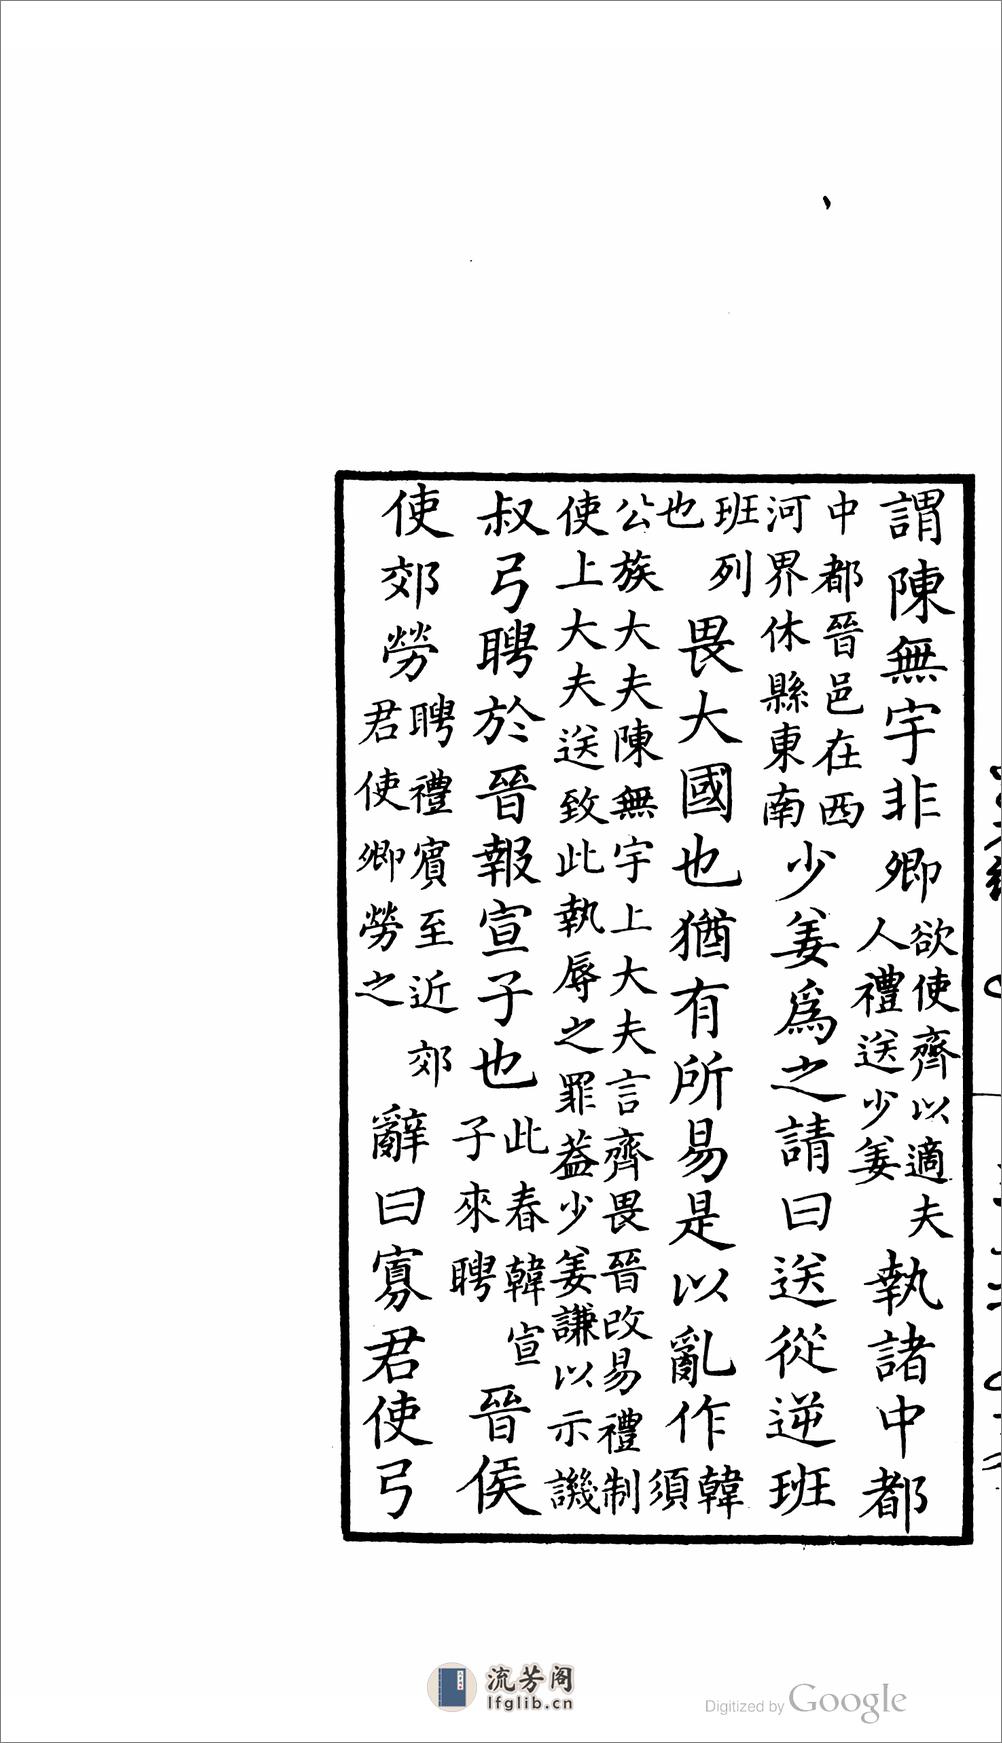 謂陳無宇非卿欲使齊以適夫人禮送少姜執諸中都
中都晉邑在西河界休縣東南少姜爲之請曰送從逆班
班列也畏大國也猶有所易是以亂作韓須
公族大夫陳無宇上大夫言齊畏晉改易禮制使上大夫送致此執辱之罪葢少姜謙以示譏
叔弓聘於晉報宣子也此春韓宣子來聘晉侯
使郊勞聘禮賓至近郊君使卿勞之辭曰寡君使弓
流芳阁
lfglib.cn
Digitized by Google